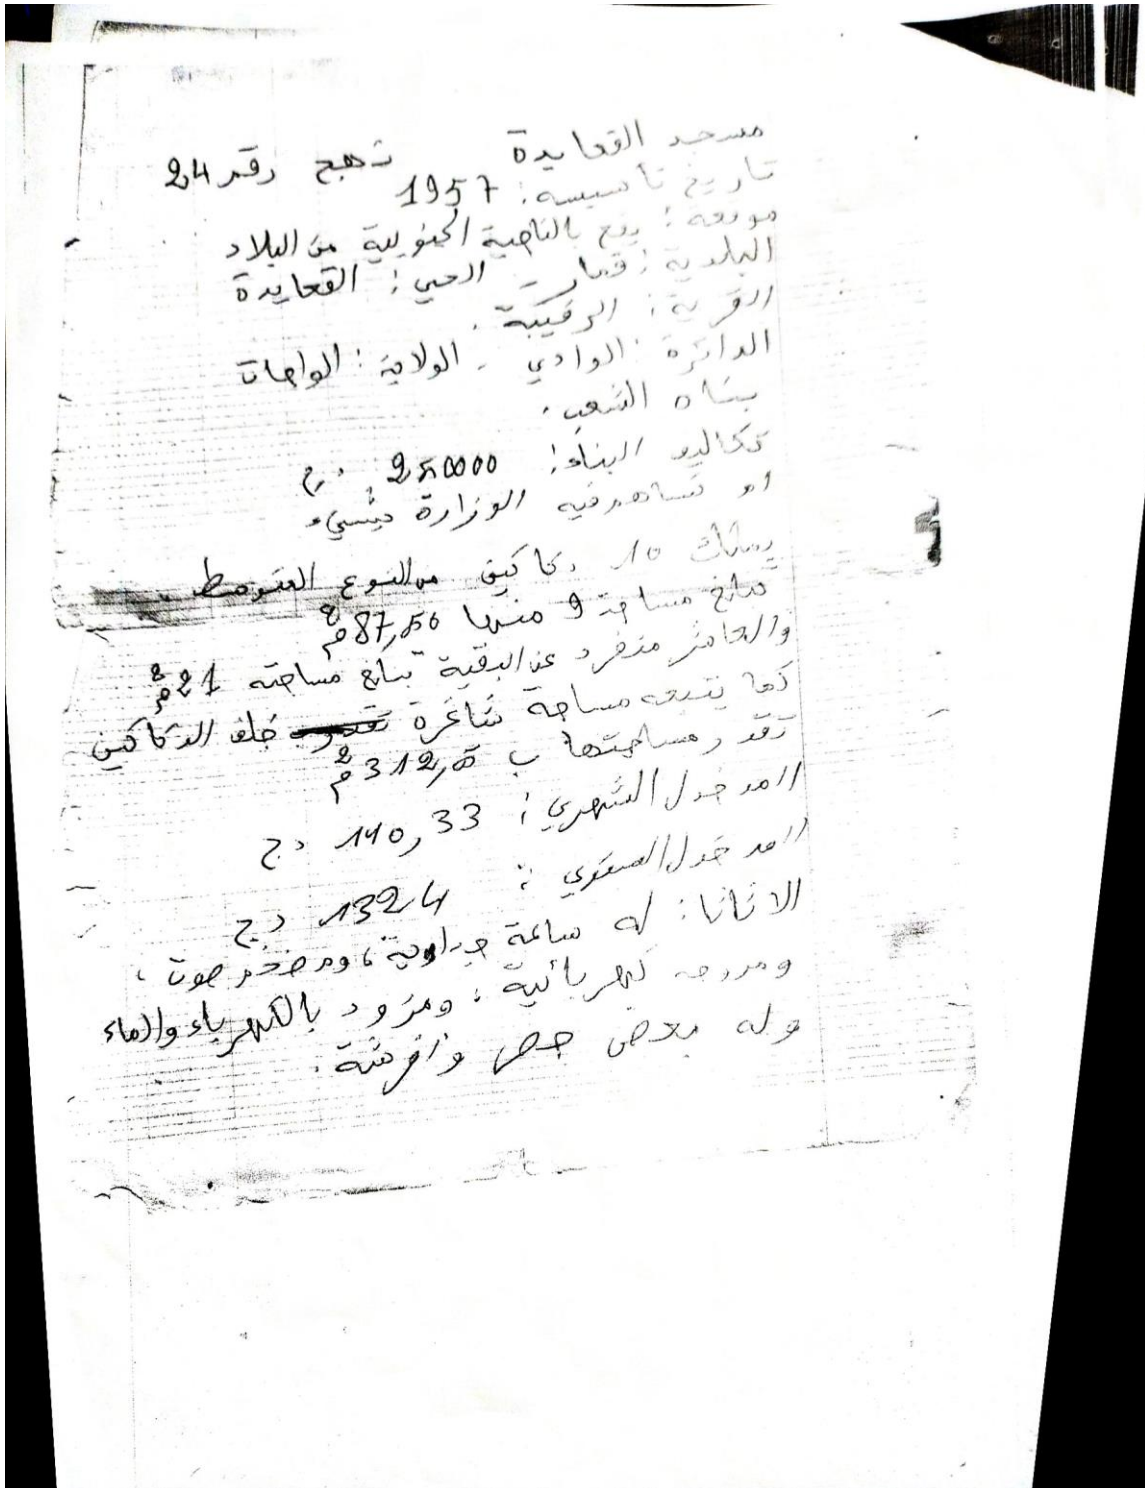 مسجد القعايدة نهج رقم 24
تاريخ تأسيسه: 1957
موقعه: يقع بالناحية الجنوبية من البلاد
البلدية: قمار - الحي: القعايدة
القرية: الرقيبة.
الدائرة: الوادي - الولاية: الواحات
بناه الشعب.
تكاليف البناء: 250000 دج
لم تساهم فيه الوزارة بشيء
يملك 10 دكاكين من النوع المتوسط.
تبلغ مساحة 9 منها 87,50 م2
والعاشر منفرد عن البقية تبلغ مساحته 21 م2
كما يتبعه مساحة شاغرة خلف الدكاكين
تقدر مساحتها ب 312,5 م2
المدخول الشهري: 110,33 دج
المدخول السنوي: 1324 دج
الاثاث: له ساعة جدارية، ومضخم صوت،
ومروحه كهربائية، ومزود بالكهرباء والماء
وله بعض حصر وأفرشة.